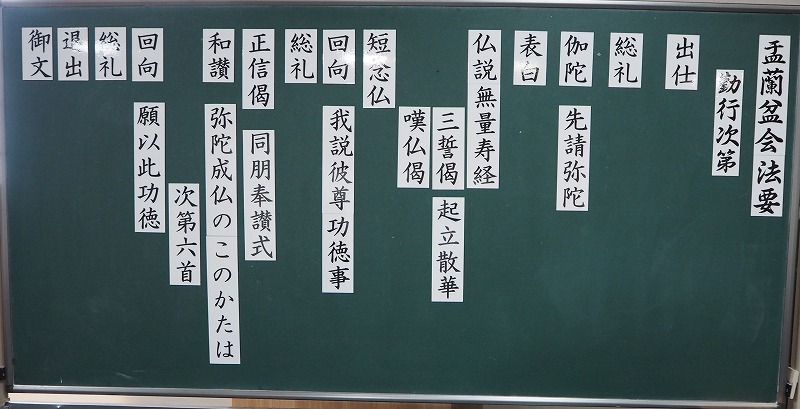 盂蘭盆会法要
勤行次第
出仕
総礼
伽陀 先請弥陀
表白
仏説無量寿経
三誓偈 起立散華
嘆仏偈
短念仏
回向 我説彼尊功徳事
総礼
正信偈 同朋奉讃式
和讃 弥陀成仏のこのかたは
次第六首
回向 願以此功徳
総礼
退出
御文